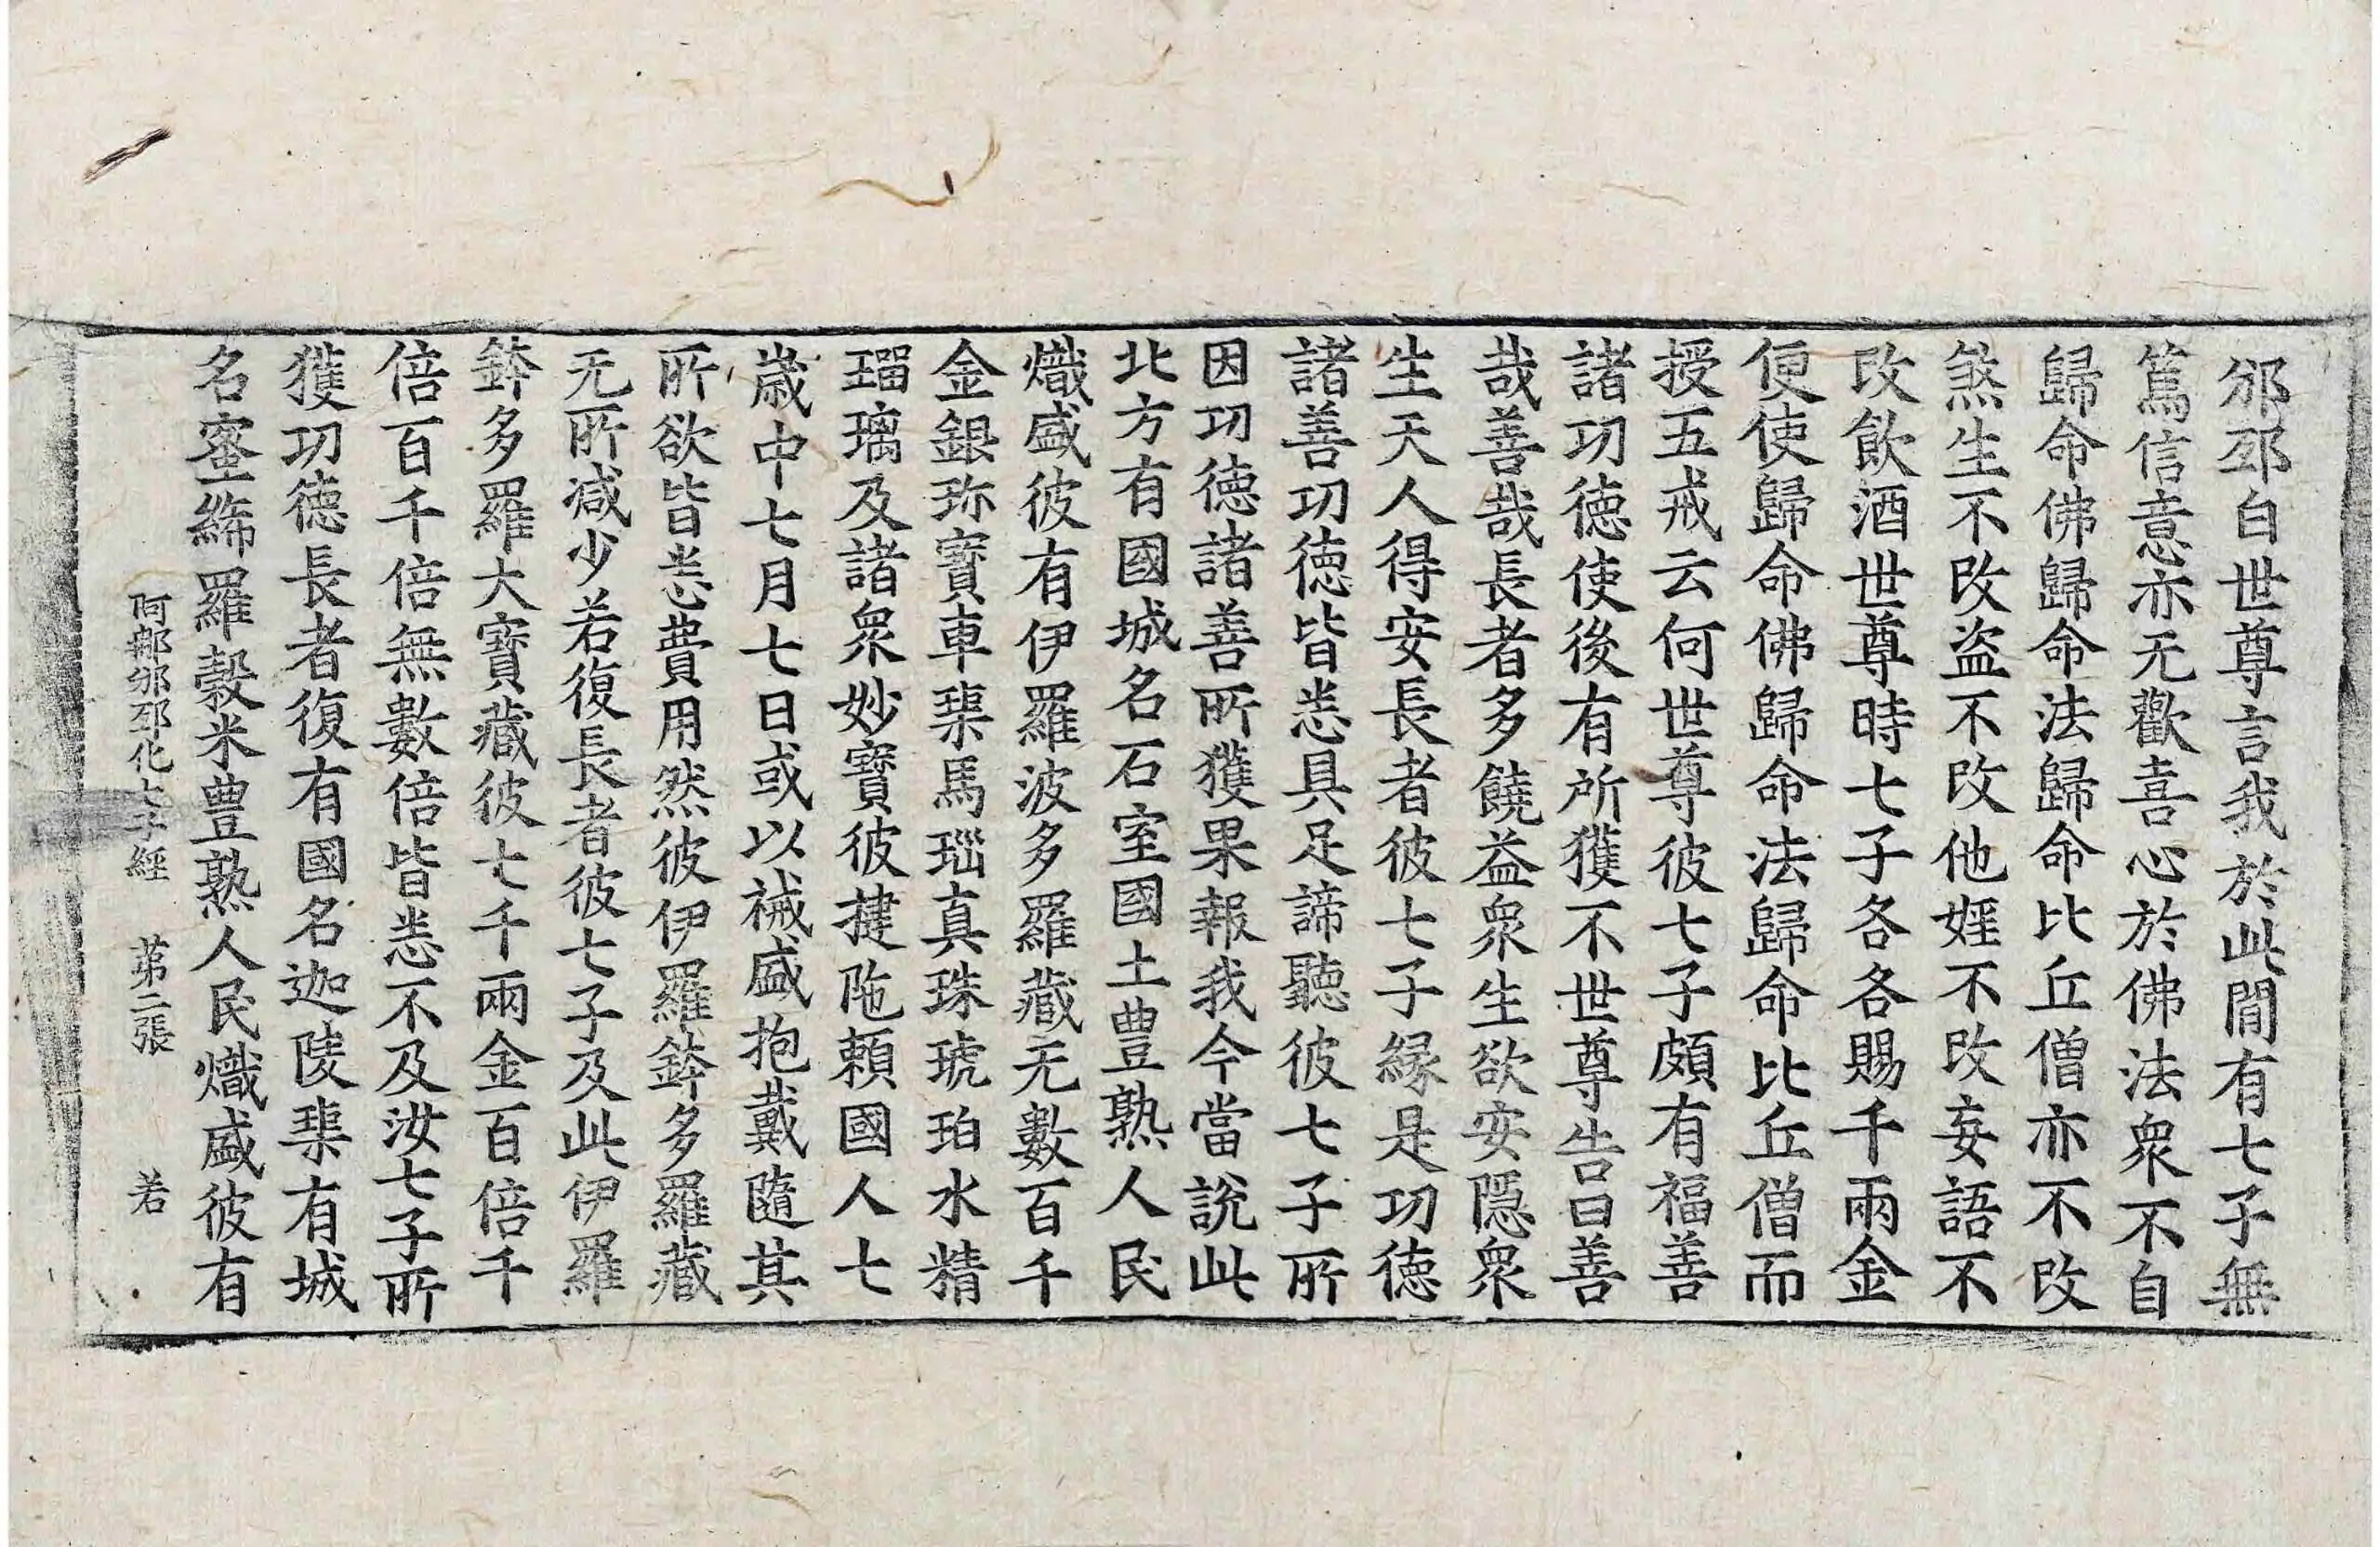 邠邳白世尊言我於此閒有七子無
篤信意亦无歡喜心於佛法衆不自
歸命佛歸命法歸命比丘僧亦不改
煞生不改盗不改他婬不改妄語不
改飲酒世尊時七子各各賜千兩金
便使歸命佛歸命法歸命比丘僧而
授五戒云何世尊彼七子頗有福善
諸功徳使後有所獲不世尊告曰善
哉善哉長者多饒益衆生欲安隱衆
生天人得安長者彼七子緣是功徳
諸善功徳皆悉具足諦聽彼七子所
因功徳諸善所獲果報我今當說此
北方有國城名石室國土豊熟人民
熾盛彼有伊羅波多羅藏无數百千
金銀珎寶車𤦲馬瑙真珠琥珀水精
瑠璃及諸衆妙寶彼揵陁賴國人七
歳中七月七日或以祴盛抱戴隨其
所欲皆悉費用然彼伊羅鉢多羅藏
无所减少若復長者彼七子及此伊羅
鉢多羅大寶藏彼七千兩金百倍千
倍百千倍無數倍皆悉不及汝七子所
獲功徳長者復有國名迦陵𤦲有城
名蜜絺羅穀米豊熟人民熾盛彼有
阿𨚗邠邳化七子經 苐二張 若